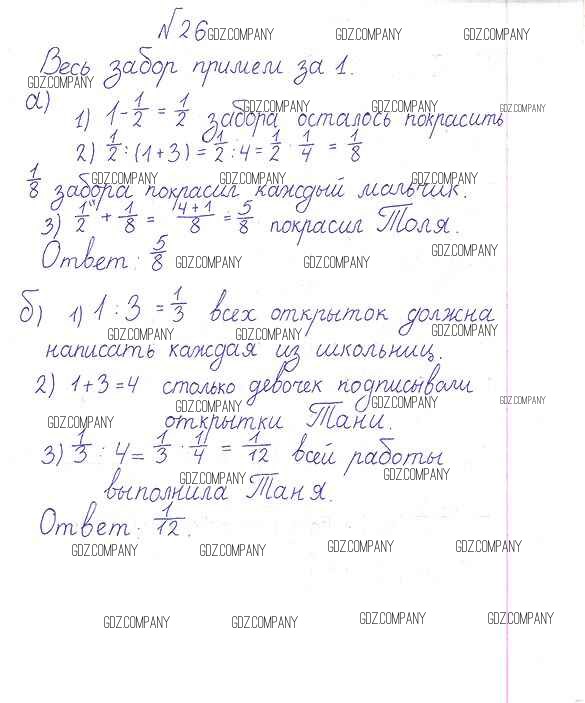 №26 GDZ.COMPANY GDZ.COMPANY GDZ.COMPANY
Весь забор примем за 1.
GDZ.COMPANY
а)
GDZ.COMPANY GDZ.COMPANY GDZ.COMPANY
1) 1-1/2 = 1/2 забора осталось покрасить
2) 1/2 : (1+3) = 1/2 : 4 = 1/2 · 1/4 = 1/8
GDZ.COMPANY GDZ.COMPANY GDZ.COMPANY
1/8 забора покрасил каждый мальчик.
3) 1/2 + 1/8 = 4+1/8 = 5/8 покрасил Толя.
GDZ.COMPANY
Ответ: 5/8 GDZ.COMPANY GDZ.COMPANY
б) 1) 1 : 3 = 1/3 всех открыток должна
GDZ.COMPANY GDZ.COMPANY GDZ.COMPANY
написать каждая из школьниц.
2) 1+3=4 столько девочек подписывали
GDZ.COMPANY GDZ.COMPANY GDZ.COMPANY
открытки Тани.
GDZ.COMPANY
3) 1/3 : 4 = 1/3 · 1/4 = 1/12 всей работы
GDZ.COMPANY GDZ.COMPANY
выполнила Таня.
Ответ: 1/12.
GDZ.COMPANY GDZ.COMPANY GDZ.COMPANY GDZ.COMPANY
GDZ.COMPANY GDZ.COMPANY GDZ.COMPANY GDZ.COMPANY